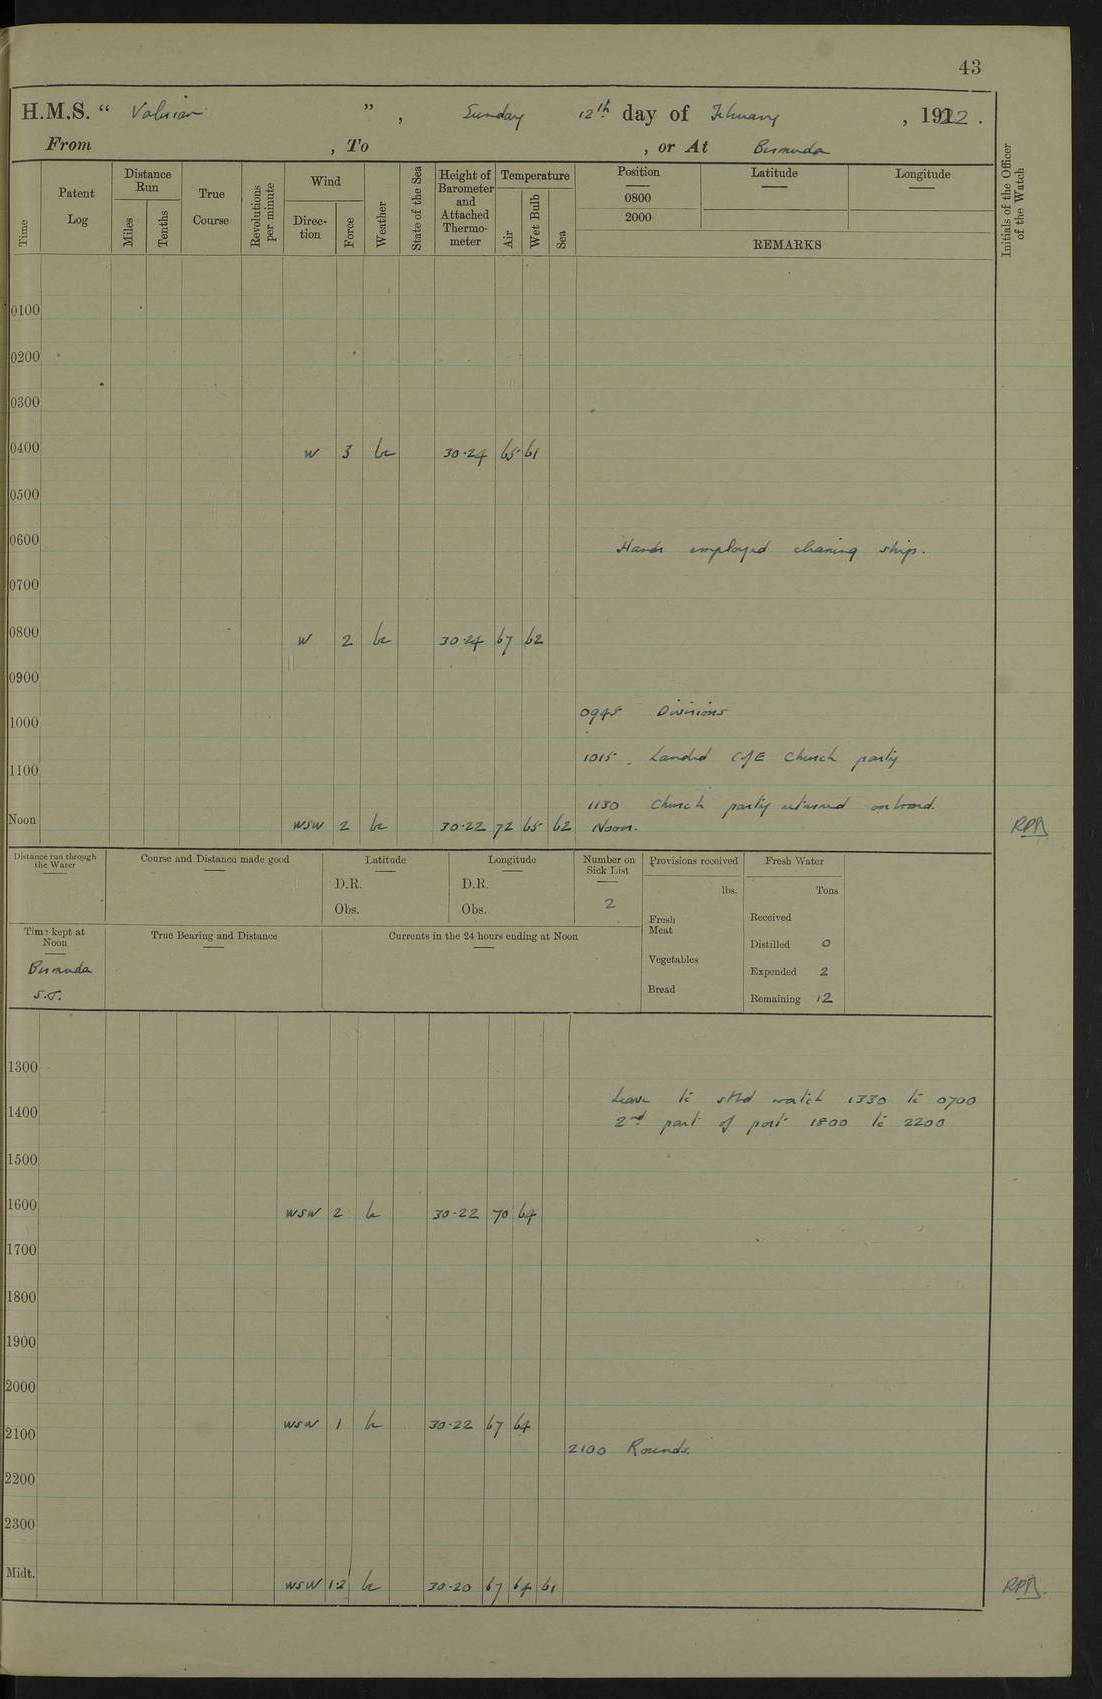 43
H.M.S. “ Valerian ” , Sunday 12th day of February , 1922 .
From , To , or At Bermuda
Time
Patent Log
Distance Run
Miles
Tenths
True Course
Revolutions per minute
Wind
Direc-tion
Force
Weather
State of the Sea
Height of Barometer and Attached Thermo-meter
Temperature
Air
Wet Bulb
Sea
Position
0800
2000
Latitude
Longitude
REMARKS
Initials of the Officer of the Watch
0100
0200
0300
0400 W 3 bc 30·24 65 61
0500
0600 Hands employed cleaning ship.
0700
0800 W 2 bc 30·24 67 62
0900
0945 Divisions
1000
1015 . Landed CofE Church party
1100
1130 Church party returned onboard.
Noon WSW 2 bc 30·22 72 65 62 Noon. RPB
Distance run through the Water
Course and Distance made good
Latitude
D.R.
Obs.
Longitude
D.R.
Obs.
Number on Sick List
2
Provisions received
lbs.
Fresh Meat
Vegetables
Bread
Fresh Water
Tons
Received
Distilled 0
Expended 2
Remaining 12
Time kept at Noon
Bermuda
S.T.
True Bearing and Distance
Currents in the 24 hours ending at Noon
1300
Leave to stbd watch 1330 to 0700
1400 2nd part of port 1800 to 2200
1500
1600 WSW 2 bc 30·22 70 64
1700
1800
1900
2000
WSW 1 bc 30·22 67 64
2100
2100 Rounds.
2200
2300
Midt. WSW 1·2 bc 30·20 67 64 61 RPB.